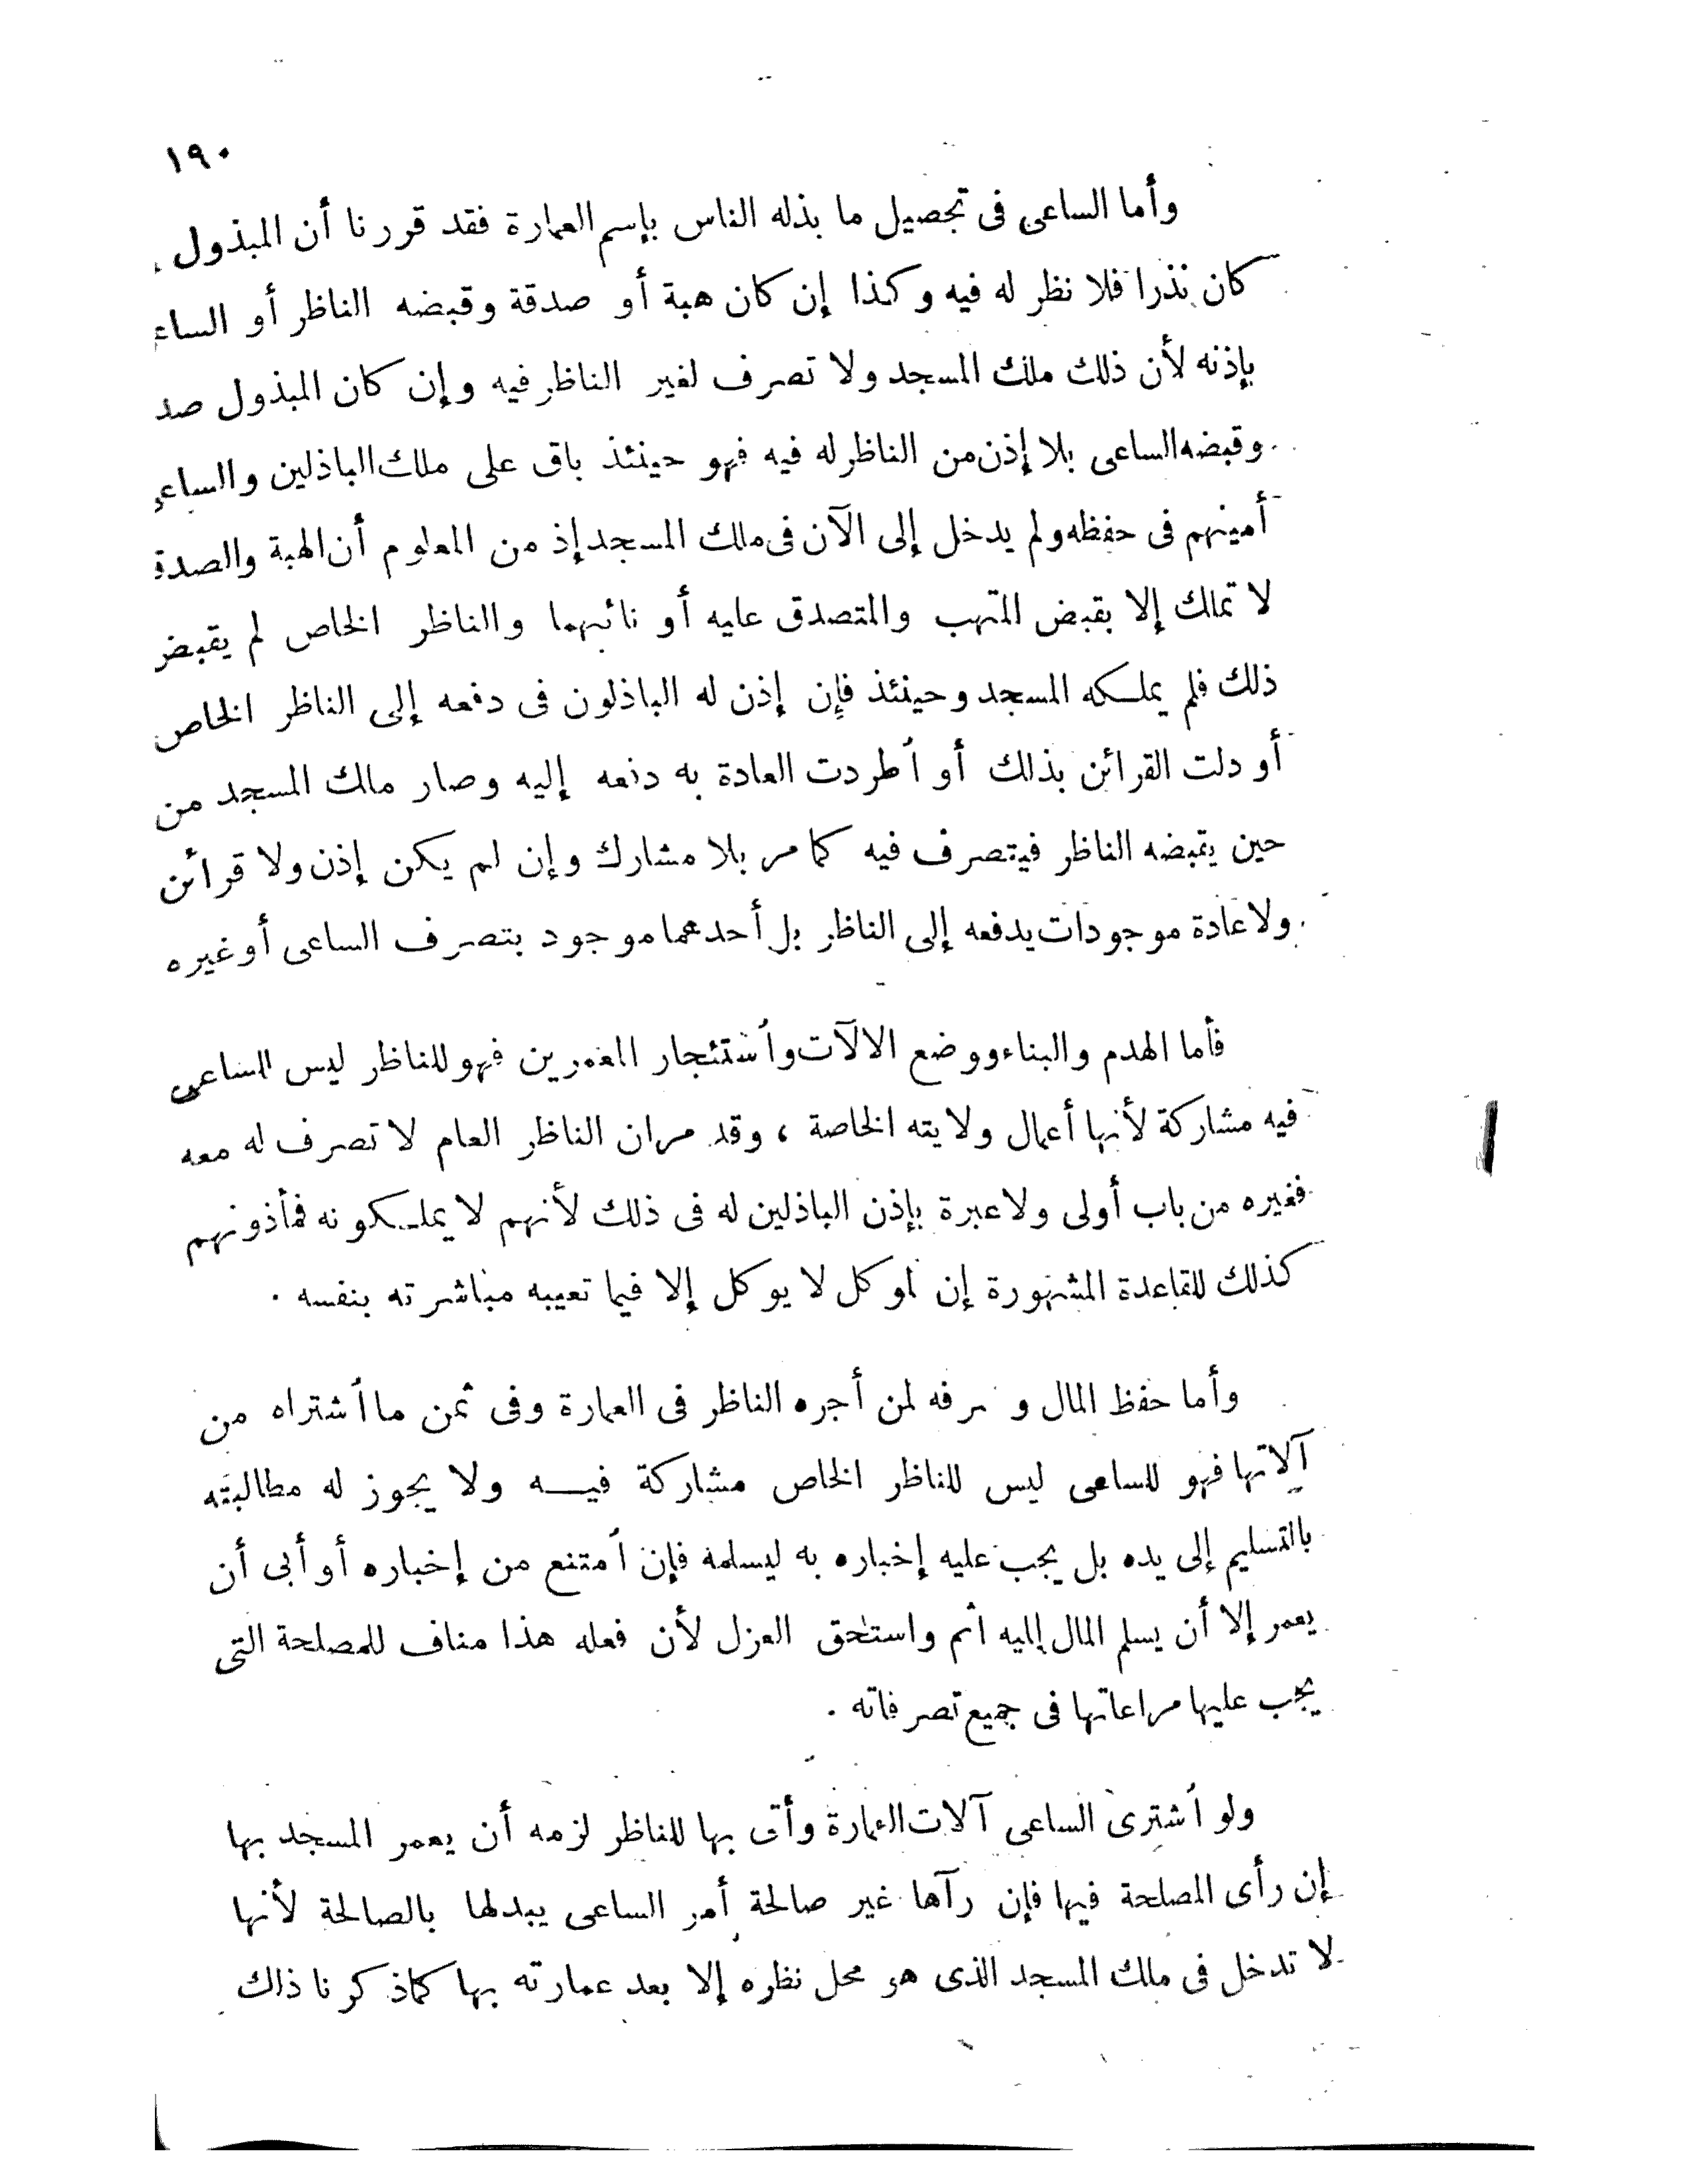 ١٩٠
وأما الساعى فى تحصيل ما بذله الناس بإسم العمارة فقد قررنا أن المبذول
كان نذرا فلا نظر له فيه وكذا إن كان هبة أو صدقة وقبضه الناظر أو الساع
بإذنه لأن ذلك ملك المسجد ولا تصرف لغير الناظر فيه وإن كان المبذول صد
وقبضه الساعى بلا إذن من الناظر له فيه فهو حينئذ باق على ملك الباذلين والساع
أمينهم فى حفظه ولم يدخل إلى الآن فى ملك المسجد إذ من المعلوم أن الهبة والصدة
لا تملك إلا بقبض المتهب والمتصدق عليه أو نائبهما والناظر الخاص لم يقبض
ذلك فلم يملكه المسجد وحينئذ فإن إذن له الباذلون فى دفعه إلى الناظر الخاص
أو دلت القرائن بذلك أو أطردت العادة به دفعه إليه وصار مالك المسجد من
حين يقبضه الناظر فيتصرف فيه كما مر بلا مشارك وإن لم يكن إذن ولا قرائن
ولا عادة موجودات يدفعه إلى الناظر بل أحدهما موجود بتصرف الساعى أو غيره
فأما الهدم والبناء ووضع الالآت وأستئجار المعمرين فهو للناظر ليس للساعى
فيه مشاركة لأنها أعمال ولايته الخاصة ، وقد مر ان الناظر العام لا تصرف له معه
فغيره من باب أولى ولا عبرة بإذن الباذلين له فى ذلك لأنهم لا يملكونه فمأذونهم
كذلك للقاعدة المشهورة إن لوكل لا يوكل إلا فيما تعيبه مباشرته بنفسه .
وأما حفظ المال و رفه لمن أجره الناظر فى العمارة وفى ثمن ما أشتراه من
آلاتها فهو للساعى ليس للناظر الخاص مشاركة فيه ولا يجوز له مطالبته
بالتسليم إلى يده بل يجب عليه إخباره به ليسلمه فإن أمتنع من إخباره أو أبى أن
يعمر إلا أن يسلم المال إليه أثم واستحق العزل لأن فعله هذا مناف للمصلحة التى
يجب عليها مراعاتها فى جميع تصرفاته .
ولو أشترى الساعى آلات العمارة وأتى بها للناظر لزمه أن يعمر المسجد بها
إن رأى المصلحة فيها فإن رآها غير صالحة أمر الساعى يبدلها بالصالحة لأنها
لا تدخل فى ملك المسجد الذى هو محل نظره إلا بعد عمارته بها كماذكرنا ذلك